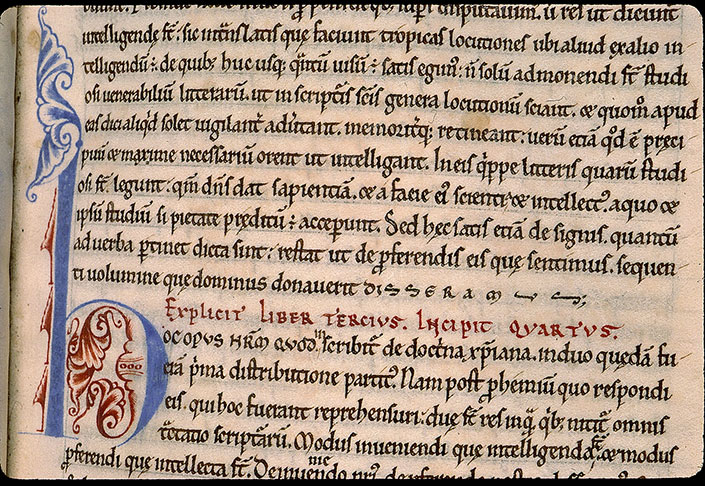 intelligendę st̄. sic intr̄nslatis que faciunt tropicas locutiones ubi aliud ex alio in
telligendū ÷. de quib; huc usq; q̄ntū uisū ÷ satis egim; n̄ solū admonendi st̄ studi
osi uenerabiliū litterarū. ut in scriptis sc̄is genera locutionū sciant. & quom̄ apud
eas dici aliq̇d solet uigilant̄ aduītant. memorit̄q; retineant: uerū etiā q̇d ē pręci
puū & maxime necessariū orent ut intelligant. In eis q̇ppe litteris quarū studi
osi st̄. legunt. qm̄ dn̄s dat sapientiā. & a facie ei᷒ scientia & intellect᷒. a quo &
ipsū studiū si pietate pręditū ÷ acceperunt. Sed hęc satis etiā de signis. quantū
ad uerba p̄tinet dicta sint: restat ut de p̄ferendis eis que sentimus. sequen
ti uolumine que dominus donauerit DISSERAMUS;
Explicit LIBER TERCIUS. Incipit QUARTUS.
HOC OPUS NRM̄ QUOD inscribit̄ de doctr̄na xp̄iana. in duo quędā fu
erā p̄ma distributione partit᷒. Nam post p̄hemiū quo respondi
eis. qui hoc fuerant reprehensuri: duę st̄ res inq̄. q̇b; nitit̄ omnis
t̄ctatio scripturarū. Modus inueniendi que intelligenda st̄. & modus
p̄ferendi que intellecta st̄. De inueniendo